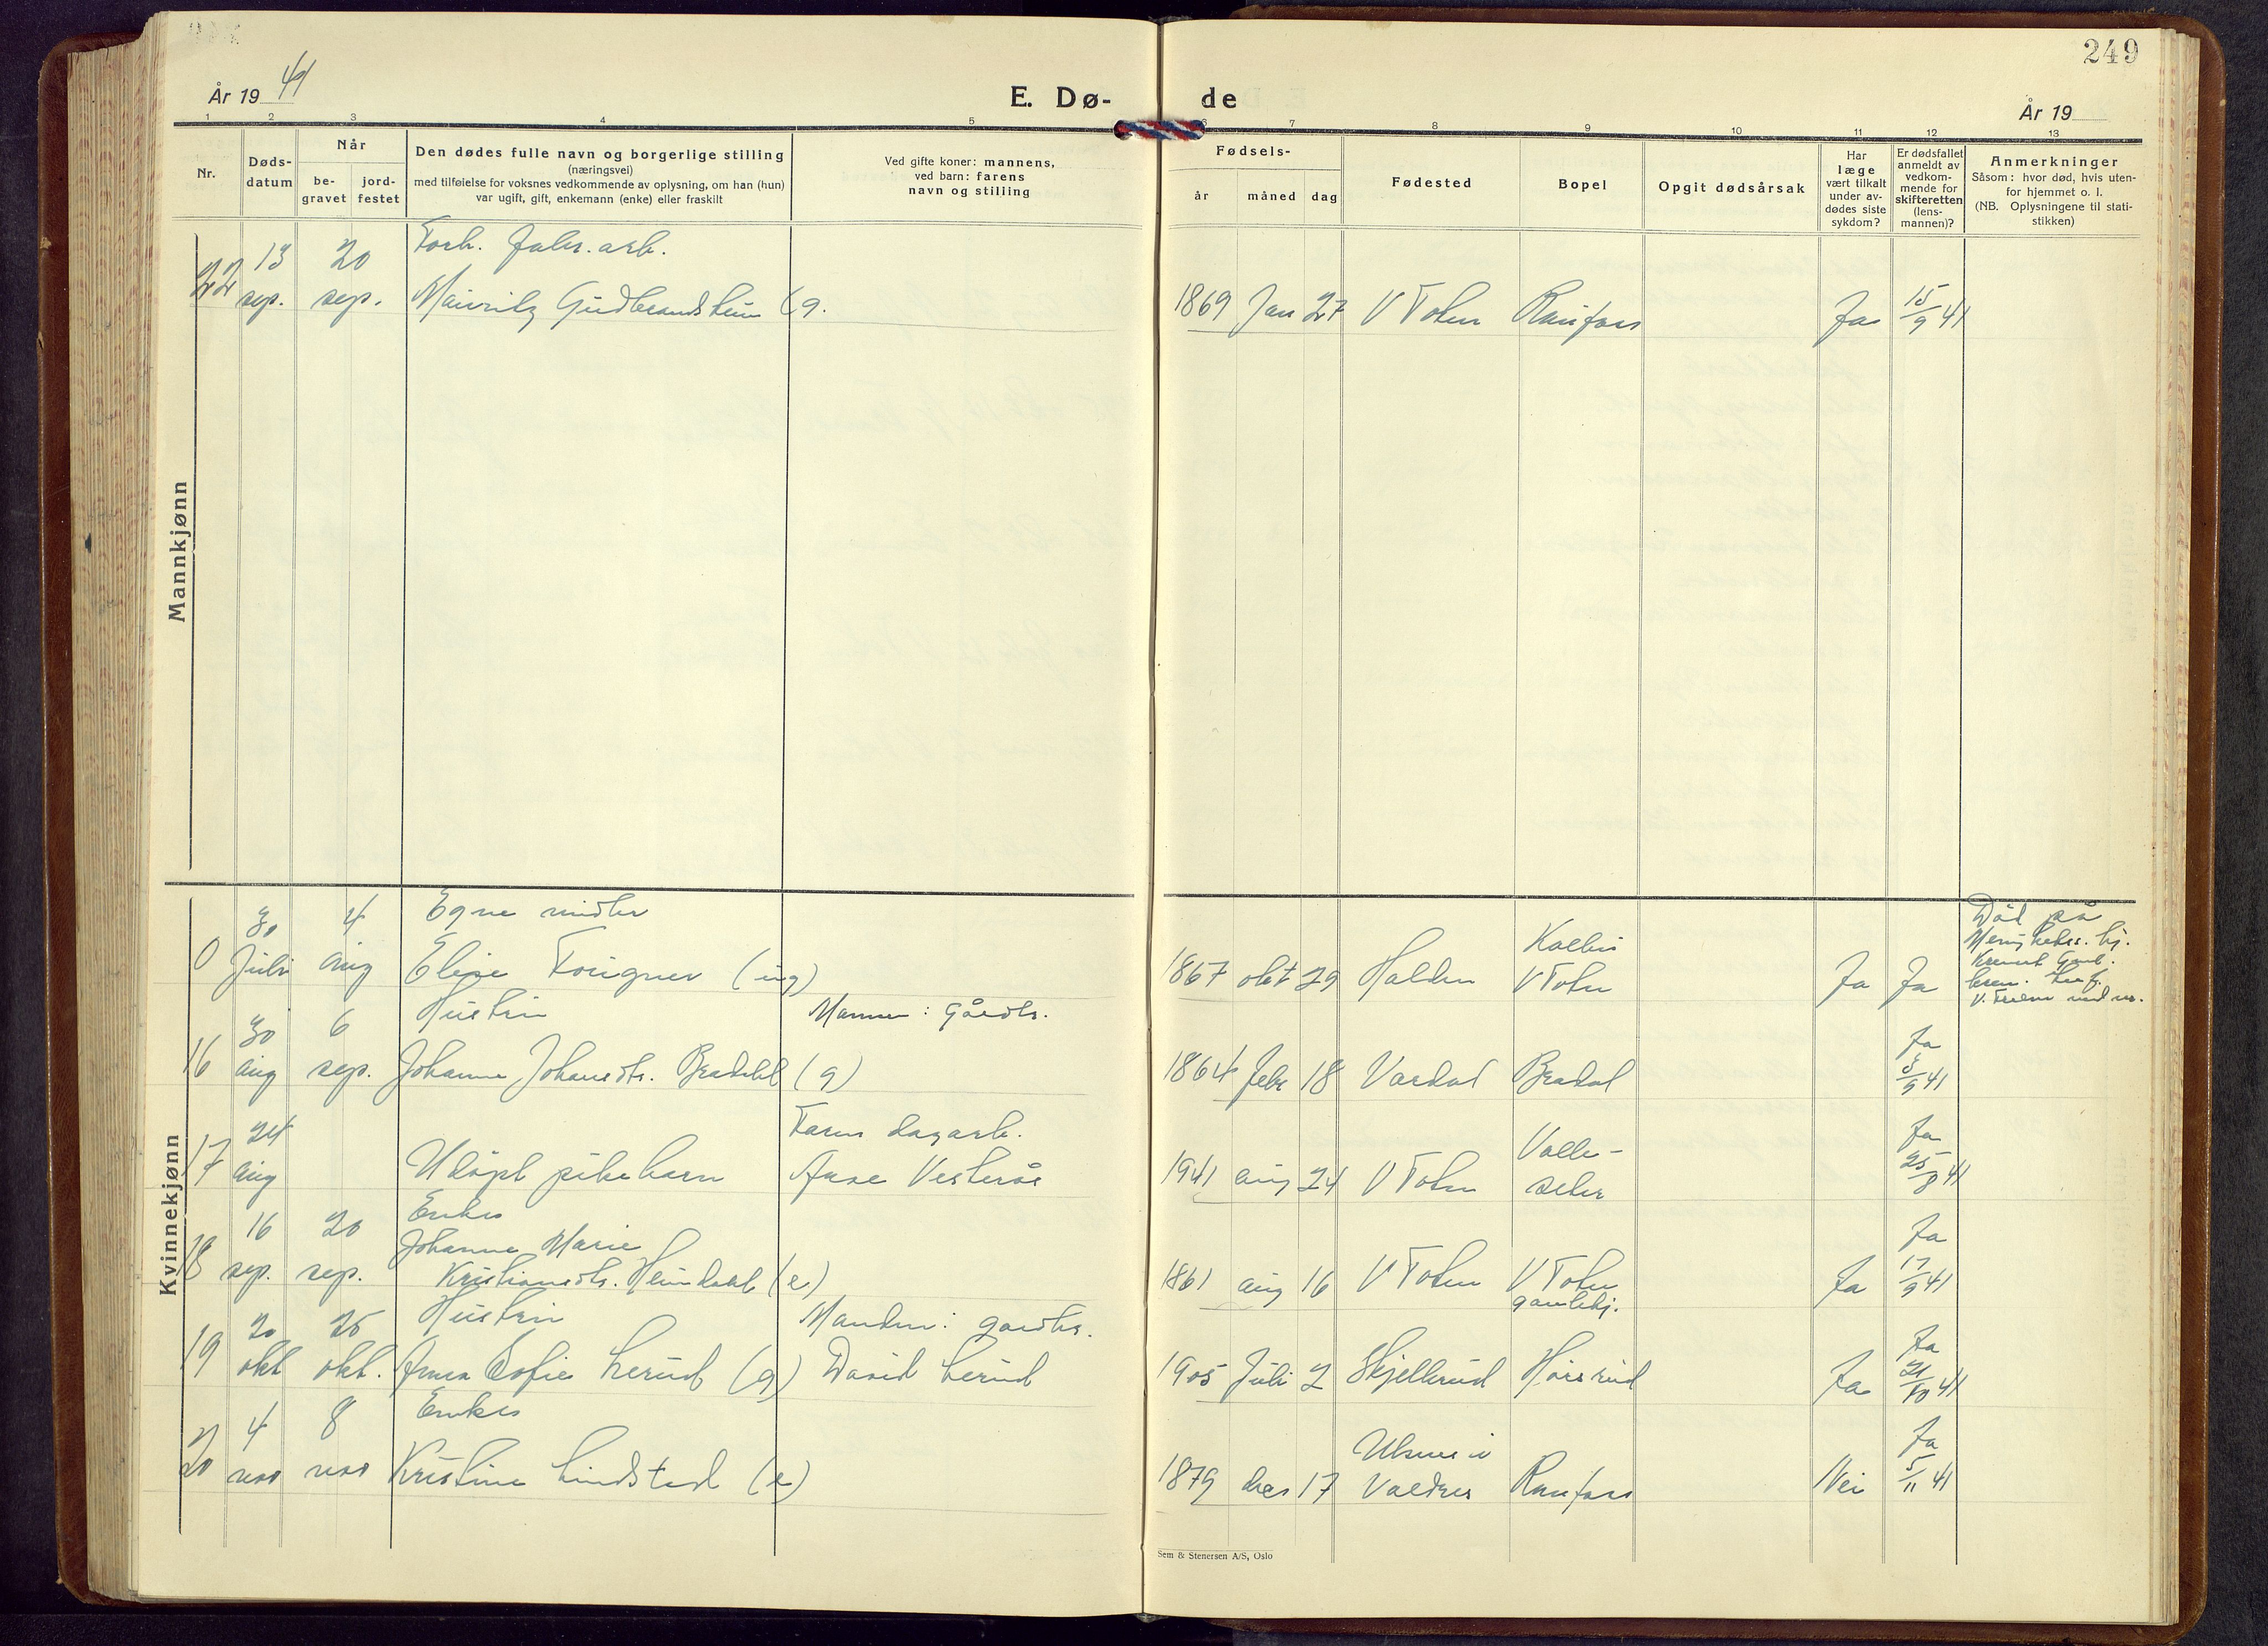 249
År 1941
E. Dø-
de
År 19
1 2 3 4 5 6 7 8 9 10 11 12 13
Nr.
Døds-
datum
Når
be-
gravet
jord-
festet
Den dødes fulle navn og borgerlige stilling
(næringsvei)
med tilføielse for voksnes vedkommende av oplysning, om han (hun)
var ugift, gift, enkemann (enke) eller fraskilt
Ved gifte koner: mannens,
ved barn: farens
navn og stilling
Fødsels-
år måned dag
Fødested
Bopel
Opgit dødsårsak
Har
læge
vært tilkalt
under av-
dødes siste
sykdom?
Er dødsfallet
anmeldt av
vedkom-
mende for
skifteretten
(lens-
mannen)?
Anmerkninger
Såsom: hvor død, hvis uten-
for hjemmet o. l.
(NB. Oplysningene til stati-
stikken)
Mannkjønn
13 20 Forh. fabr. arb.
22 sep. sep. Mauritz Gudbrandshun (g. 1869 Jan 27 V Toten Raufoss Ja 15/9 41
Kvinnekjønn
30 4 Egne midler Kolbu Död på
0 Juli aug Elise Fougner (ug) 1867 okt 29 Halden V Toten Ja Ja
30 6 Hustru Mannen: Gårdbr. Ja
16 aug sep. Johanne Johansdtr. Bradahl (g) 1864 febr 18 Vardal Bradal 3/9 41
24 Faren dagarb. Valle- Ja
17 aug Udöpt pikebarn Arne Vesterås 1941 aug 24 V Toten seter 25/8 41
16 20 Enke Ja
Johanne Marie
18 sep. sep. Kristiansdtr. Heimdahl (e) 1861 aug 16 V Toten V Toten Ja 17/9 41
gamlehj.
20 25 Hustru Manden: gardbr. Ja
19 okt okt. Anna Sofie Lerud (g) David Lerud 1905 Juli 2 Skjellerud Hörsrud Ja 21/10 41
4 8 Enke Ulnes i Ja
20 nov nov Kristine Lindstad (e) 1879 des 17 Valdres Raufoss Nei 5/11 41
Sem & Stenersen A/S, Oslo